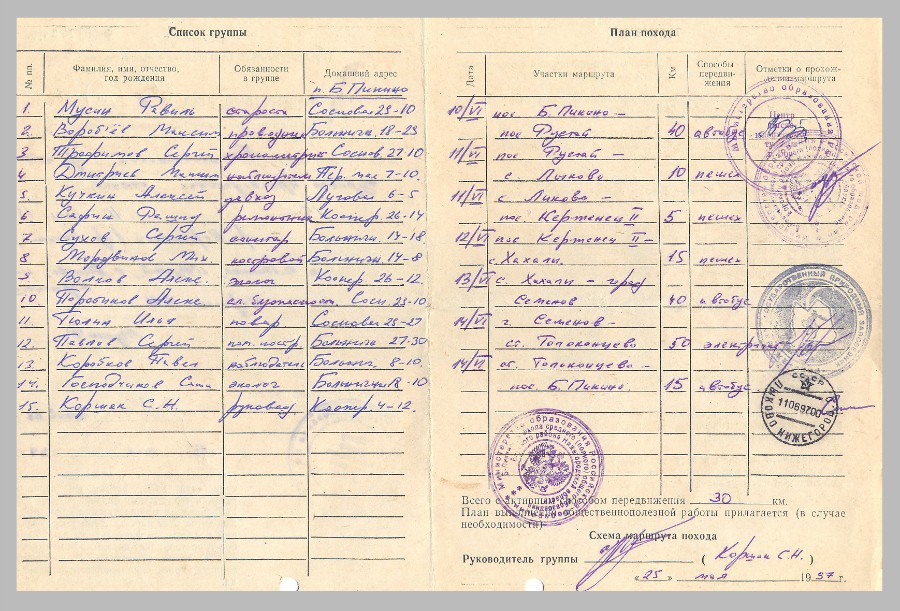 Список группы
№ пп.
Фамилия, имя, отчество, год рождения
Обязанности в группе
Домашний адрес
п. Б Пикино
1 Мусин Равиль староста Сосновая 29-10
2. Воробьёв Максим проводник Больничн. 18-23
3 Трофимов Сергей хронометрист Соснов. 27-10
4 Дмитриев наблюдатель 7-10.
5 Кучкин Алексей завхоз Луговая 6-5
6. Сафин Рашид ремонтник Коопер. 26-14
7 Сухов Сергей санитар Больничн. 14-18
8 Мордвинов Мих. костровой Больничн. 14-8
9 Волков Алекс. эколог Коопер 26-12
10 Алекс. сл. безопасности Сосн. 29-10
11. Тюлин Илья повар Сосновая 29-27
12. Павлов Сергей пом. костр. Больничн 27-30
13. Коробков Павел наблюдатель Больнич. 8-10.
14. Господчиков Саша эколог Больничн 18-10
15. Коршак С.Н. руковод. Коопер. 4-12.
План похода
Дата
Участки маршрута
Км
Способы передвижения
Отметки о прохождении маршрута
10/VI пос Б. Пикино –
пос Рустай 40 автобус
11/VI пос. Рустай –
с. Лыково 10 пешех
11/VI с. Лыково –
пос. Керженец II 5 пешех
12/VI пос Керженец II –
с. Хахалы. 15 пешех
13/VI с. Хахалы – град
Семенов 40 автобус
14/VI г. Семенов –
ст. Толоконцево 50 электричка
14/VI ст. Толоконцево –
пос. Б. Пикино. 15 автобус
СССР
110697
НИЖЕГОРОД
Всего с активным способом передвижения 30 км.
План выполнения общественнополезной работы прилагается (в случае
необходимости)
Схема маршрута похода
Руководитель группы ( Коршак С.Н. )
«25» мая 1997 г.